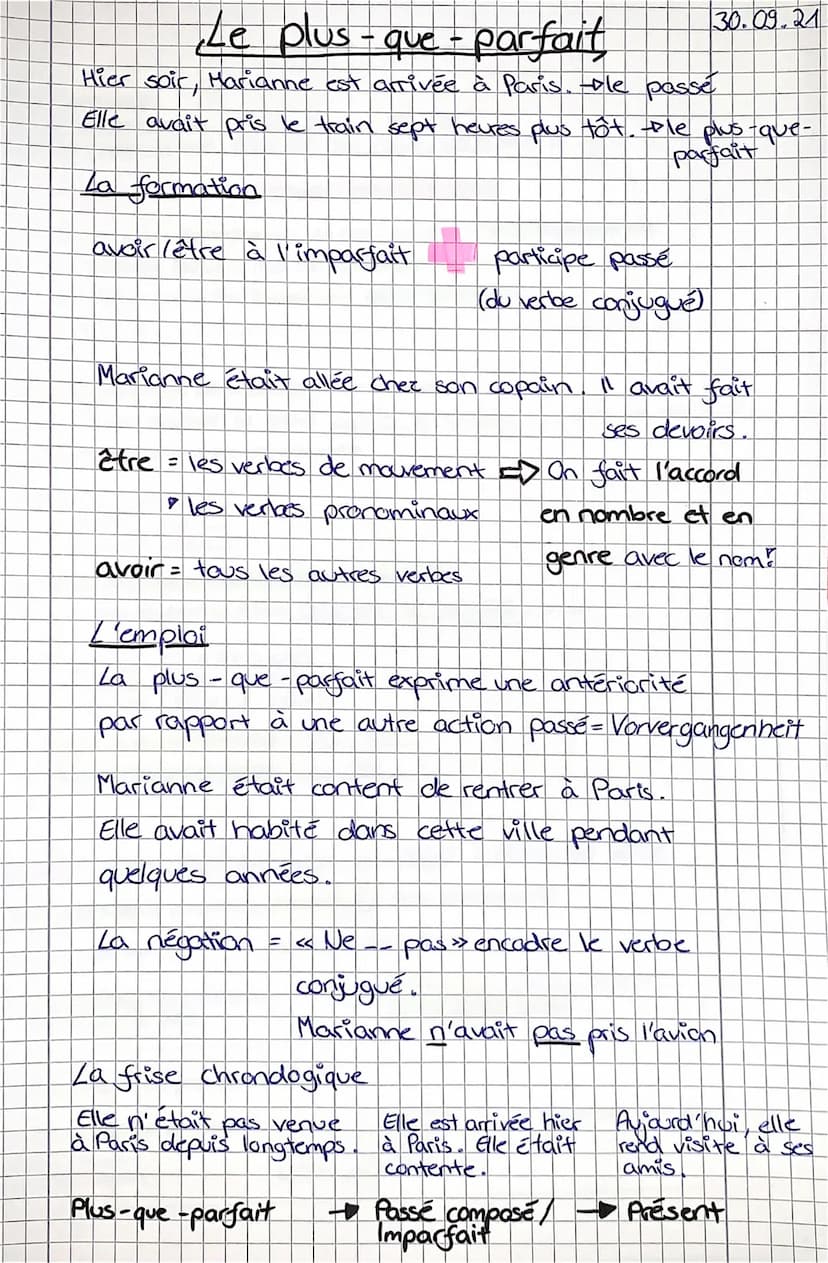 Le plus-que-parfait 30.09.21
Hier soir, Marianne est arrivée à Paris. → le passé
Elle avait pris le train sept heures plus tôt. → le plus-que-
parfait
La formation
avoir/être à l'imparfait + participe passé
(du verbe conjugué)
Marianne était allée chez son copain. Il avait fait
ses devoirs.
être = les verbes de mouvement ⇒ On fait l'accord
les verbes pronominaux en nombre et en
genre avec le nom!
avoir = tous les autres verbes
L'emploi
La plus-que-parfait exprime une antériorité
par rapport à une autre action passé = Vorvergangenheit
Marianne était content de rentrer à Paris.
Elle avait habité dans cette ville pendant
quelques années.
La négation = « Ne -- pas » encadre le verbe
conjugué.
Marianne n'avait pas pris l'avion
La frise chrondogique
Elle n'était pas venue
à Paris depuis longtemps.
Elle est arrivée hier
à Paris. Elle était
contente.
Aujourd'hui, elle
rend visite à ses
amis.
Plus-que-parfait → Passé composé/ → Présent
Imparfait